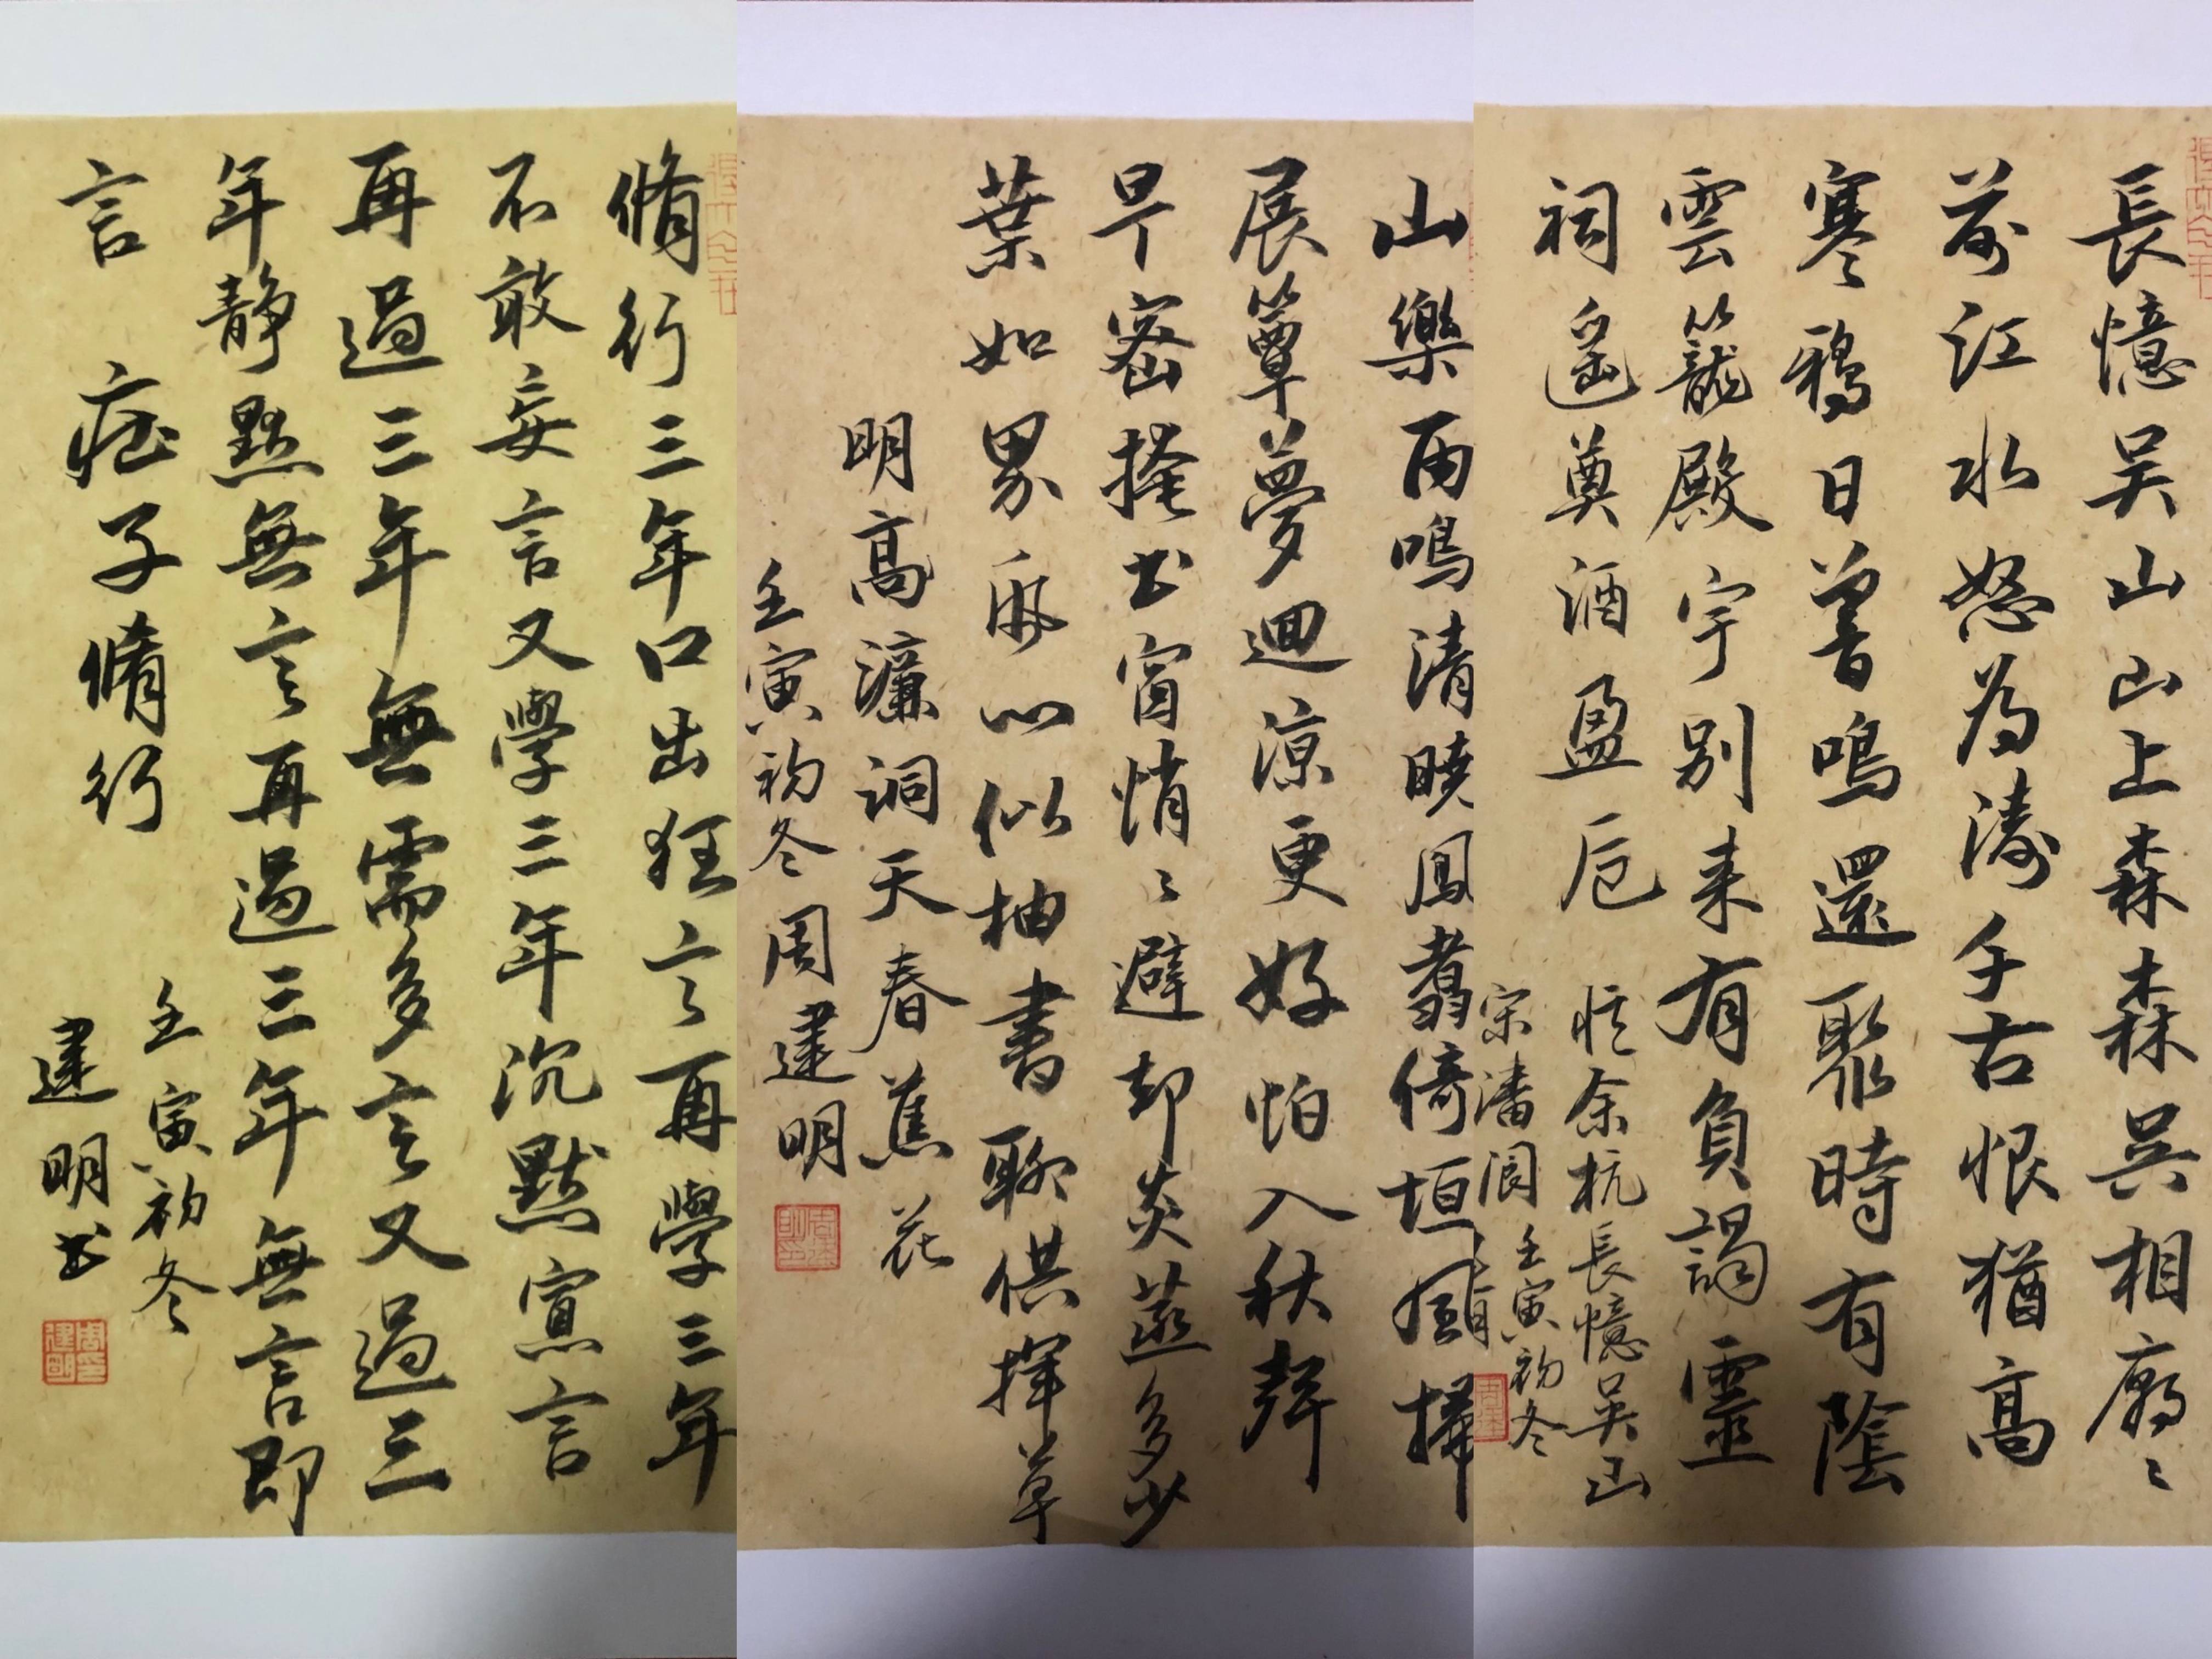 長憶吳山山上森森吳相廟〻
前江水怒為濤千古恨猶高
寒鴉日暮鳴還聚時有陰
雲籠殿宇別来有負謁靈
祠遥奠酒盈卮 忆余杭長憶吳山
宋潘阆 壬寅初冬
山樂雨鳴清曉鳳翥倚垣風掃
展簟夢迴涼更好怕入秋聲
早密掩书窗悄〻避却炎蒸多少
葉如界紙心似抽書聊供揮草
明高濂詞天春蕉花
壬寅初冬周建明
脩行三年口出狂言再學三年
不敢妄言又學三年沉默寡言
再過三年無需多言又過三
年静默無言再過三年無言即
言 痴子脩行
壬寅初冬
建明书